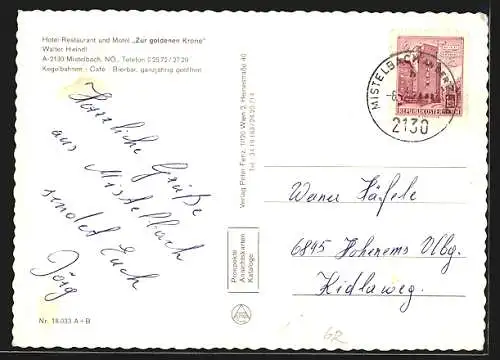 Hotel-Restaurant und Motel „Zur goldenen Krone"
Walter Heindl
A-2130 Mistelbach, NÖ., Telefon 02572/2729
Kegelbahnen · Café · Bierbar, ganzjährig geöffnet
Herzliche Grüße
aus Mistelbach
sendet Euch
Jörg
Nr. 18.033 A+B
Verlag Peter Fertz, 1020 Wien 2, Heinestraße 40
Prospekte
Ansichtskarten
Kataloge
MISTELBACH AN DER
2130
REPUBLIK ÖSTERREICH
Werner Häfele
6845 Hohenems Vlbg.
Kidlaweg.
62